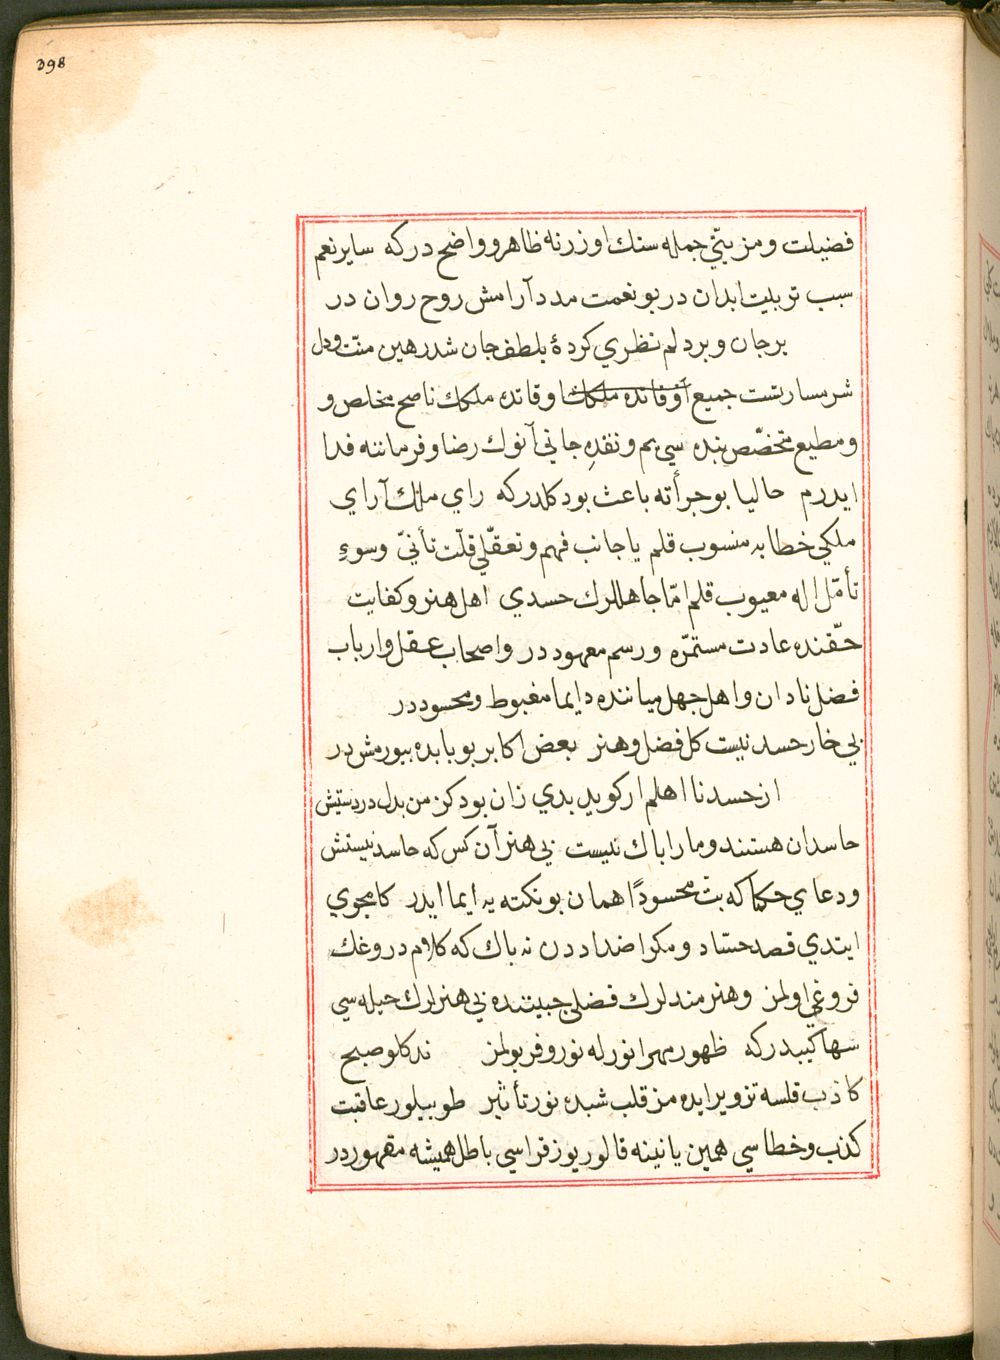 398
فضيلت و مزيتي جمله سنك اوزرنه ظاهر و واضح در كه ساير نعم
سبب تربيت ابدان در بو نعمت مدد آرامش روح روان در
بر جان و بر دلم نظري كردۀ بلطف جان شد رهين منّت و دل
شرمسار تست جميع آوقاتده ملكك اوقاتده ملكك ناصح مخلص و
و مطيع متخصّص بنده سي يم و نقدِ جاني آنوك رضا و فرماننه فدا
ايدرم حاليا بو جرأته باعث بودكلدر كه راي ملك آراي
ملكي خطايه منسوب قلم يا جانب فهم و تعقّلي قلّت تأنيّ و سوءِ
تأمّل اله معيوب قلم امّا جاهللرك حسدي اهل هنر و كفايت
حقّنده عادت مستمرّه و رسم معهود در و اصحاب عقل و ارباب
فضل نادان و اهل جهل مياننده دايما مغبوط و محسود در
بي خار حسد نيست كل فضل و هنر بعض اكابر بو بابده بيورمش در
از حسد نا اهلم ار كويد بدي زان بود كز من بدل در دستيش
حاسدان هستند و ما را باك نيست بي هنر آن كس كه حاسد نيستش
و دعاي حكما كه بتّ محسودًا همان بو نكته يه ايما ايدر كامجوي
ايتدي قصد حسّاد و مكر اضداددن نه باك كه كلام دروغك
فروغي اولمز و هنرمندلرك فضلي جنبنده بي هنرلرك حيله سي
سها كيبدر كه ظهور مهر انورله نور و فر بولمز نه دكلو صبح
كاذب قلسه تزوير ايده مز قلب شبده نور تأثير طوييلور عاقبت
كذب و خطاسي همين يانينه قالور يوز قراسي باطل هميشه مقهوردر